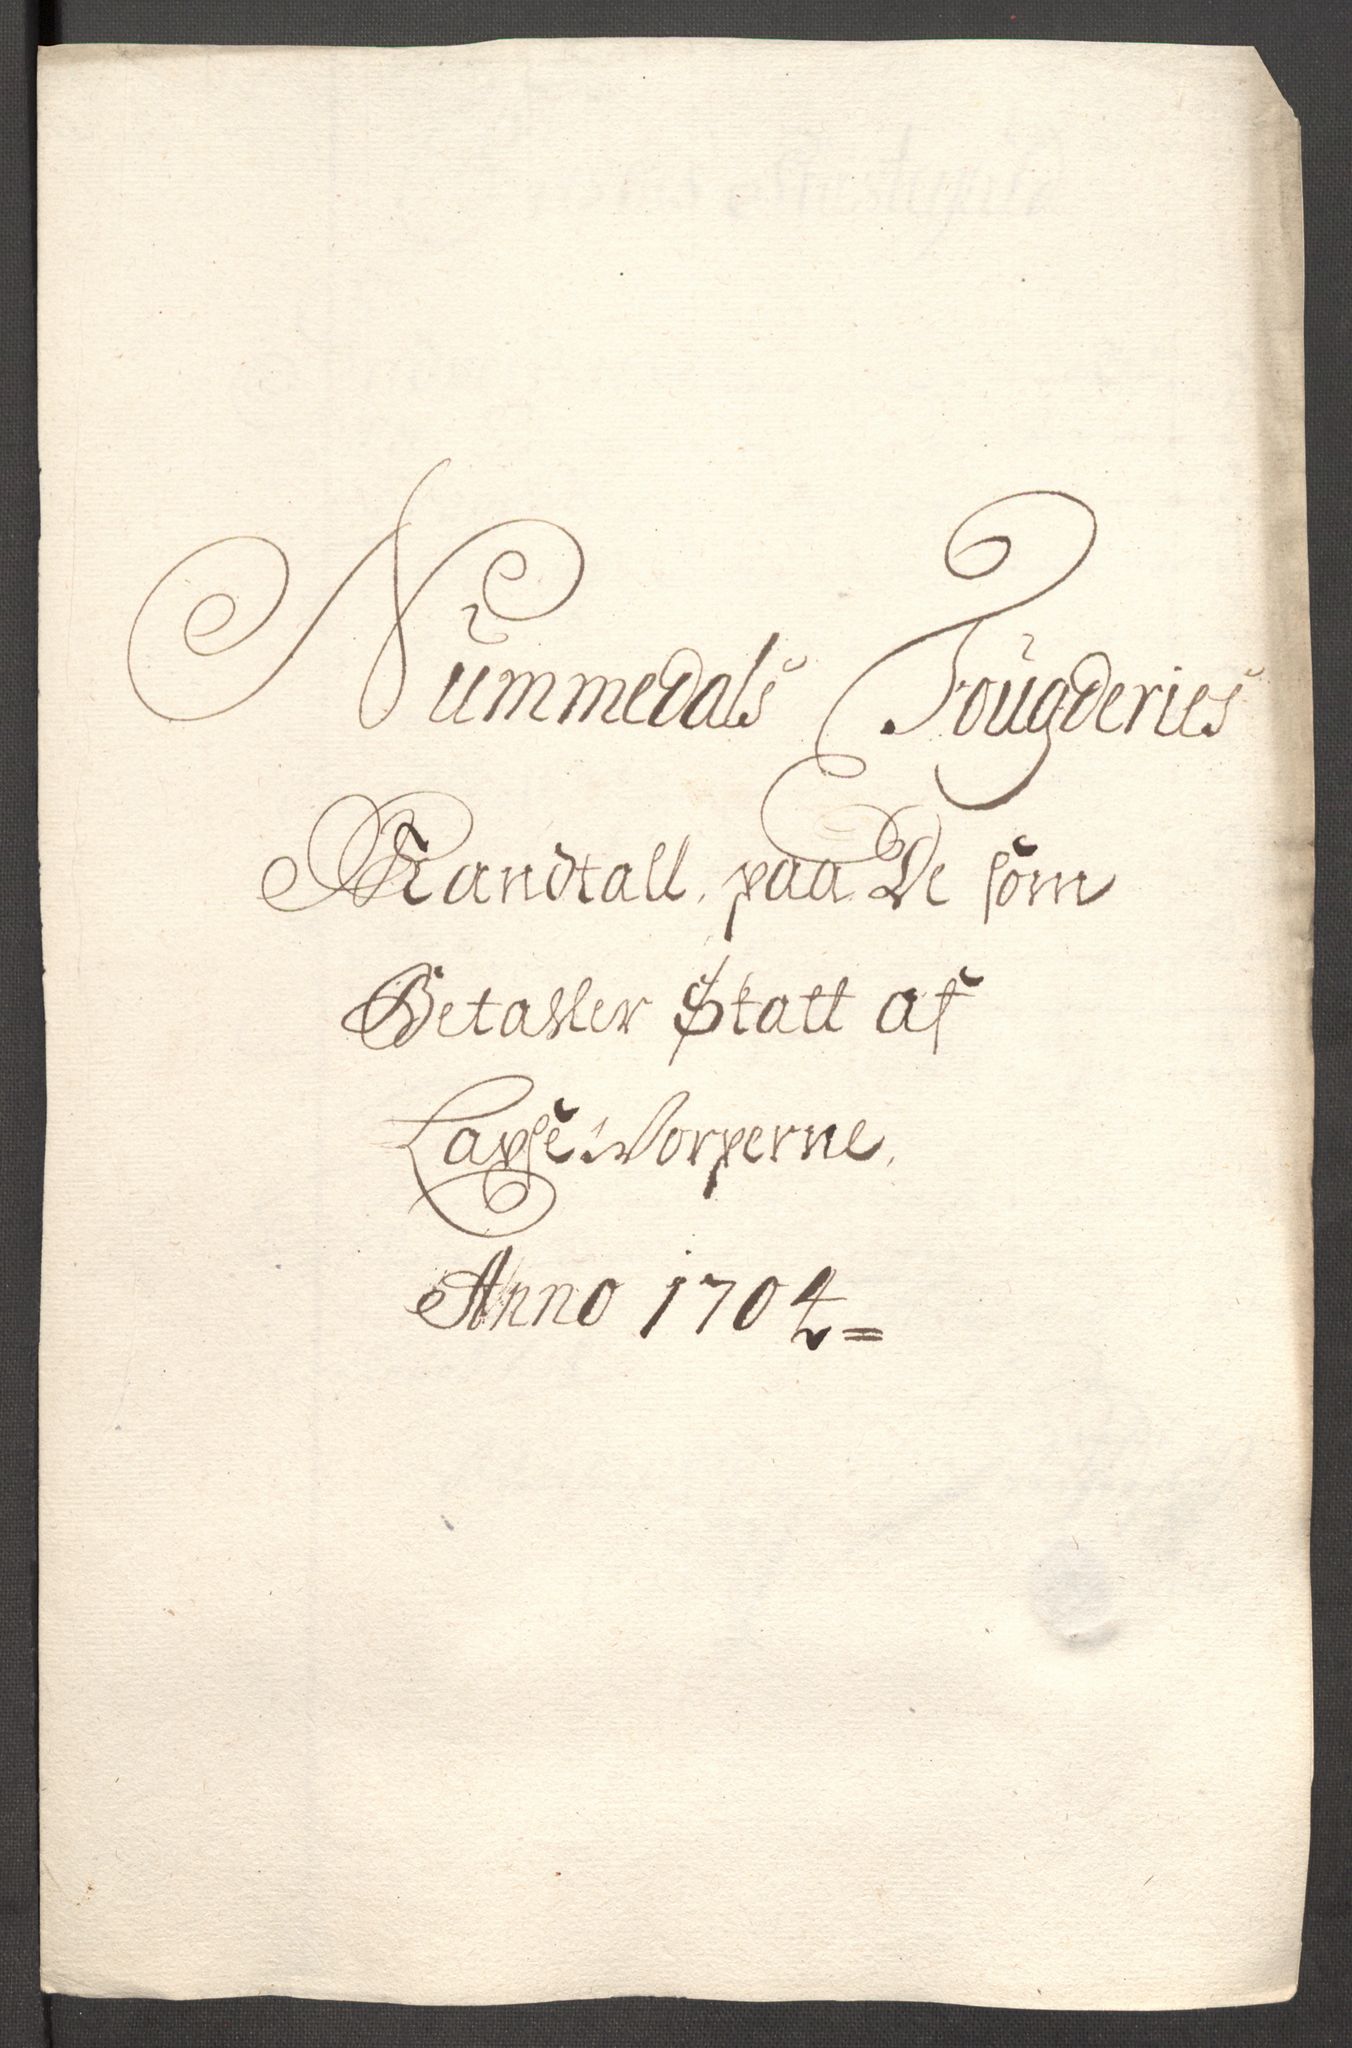 Nummedals Fougderies
Mandtall paa De som
Betaller Skatt af
Laxse Worperne.
Anno 1704=